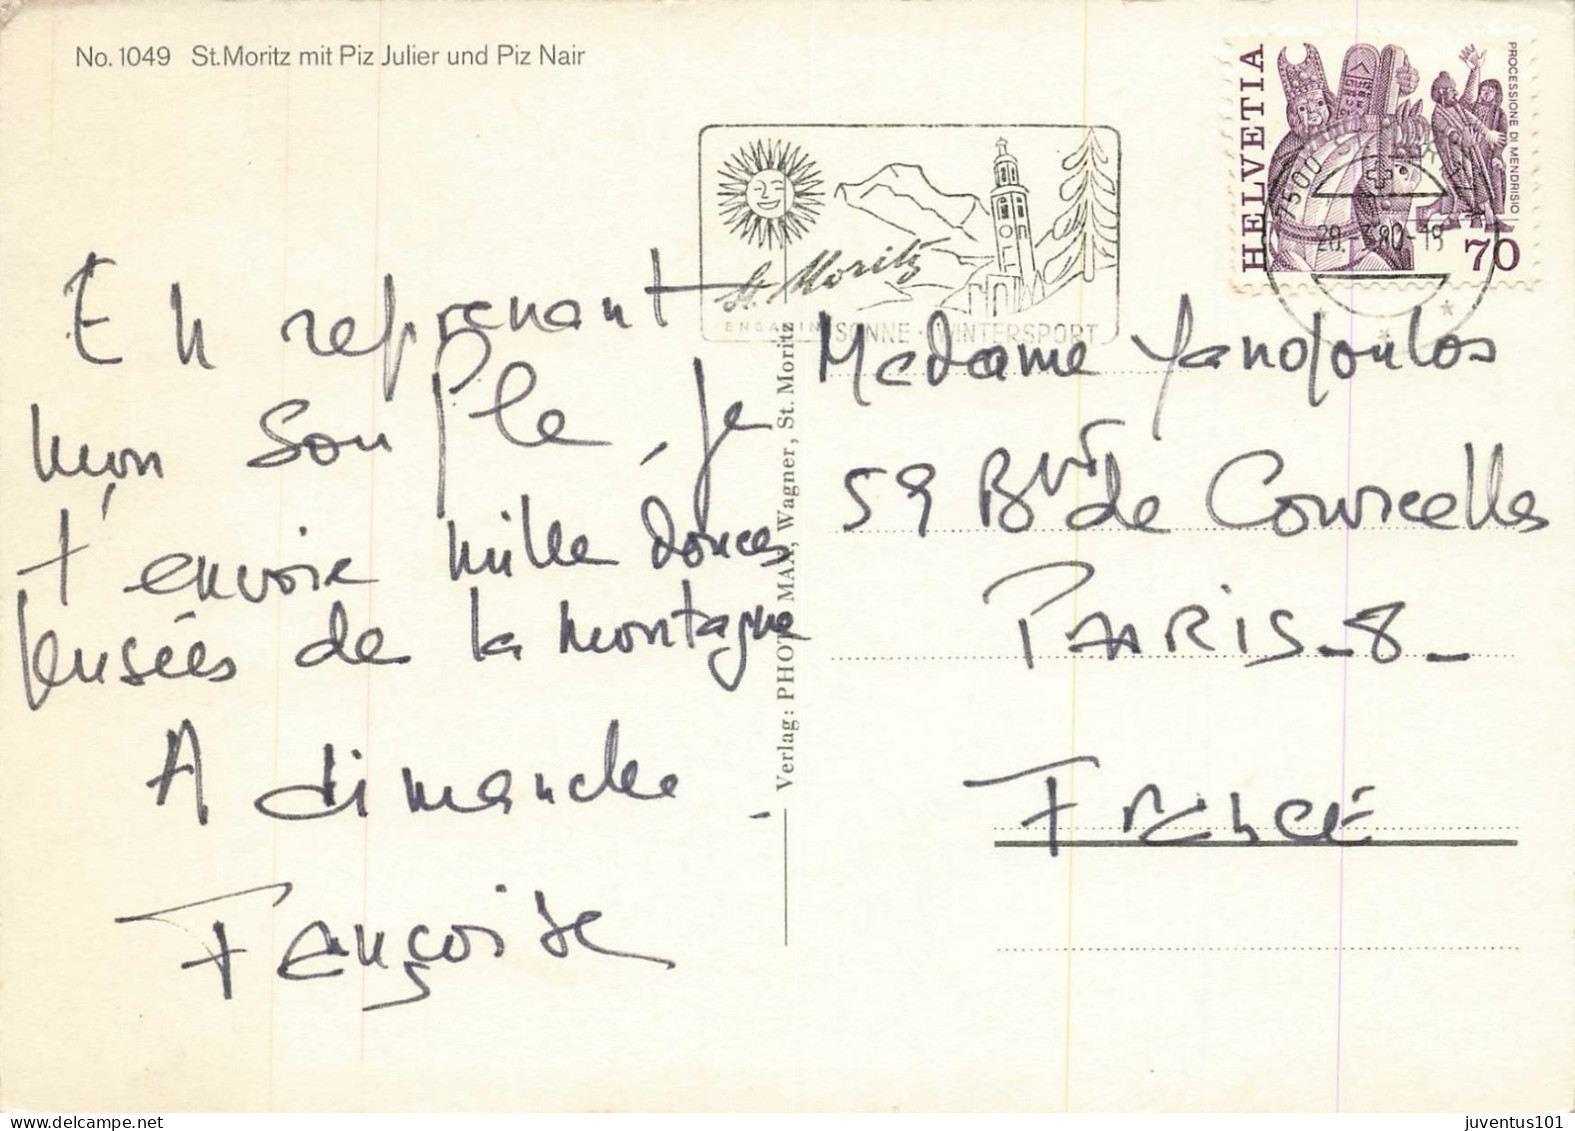 No. 1049 St. Moritz mit Piz Julier und Piz Nair
HELVETIA
PROCESSIONE DI MENDRISIO
70
7500
28.-3.80-19
St. Moritz
ENGADIN SONNE · WINTERSPORT
En reprenant
mon souffle, je
t'envoie mille douces
pensées de la montagne
A dimanche.
Françoise
Verlag: PHOTO MAX, Wagner, St. Moritz
Madame Yanopoulos
59 Bvd de Courcelles
PARIS-8-
FRANCE
juventus101